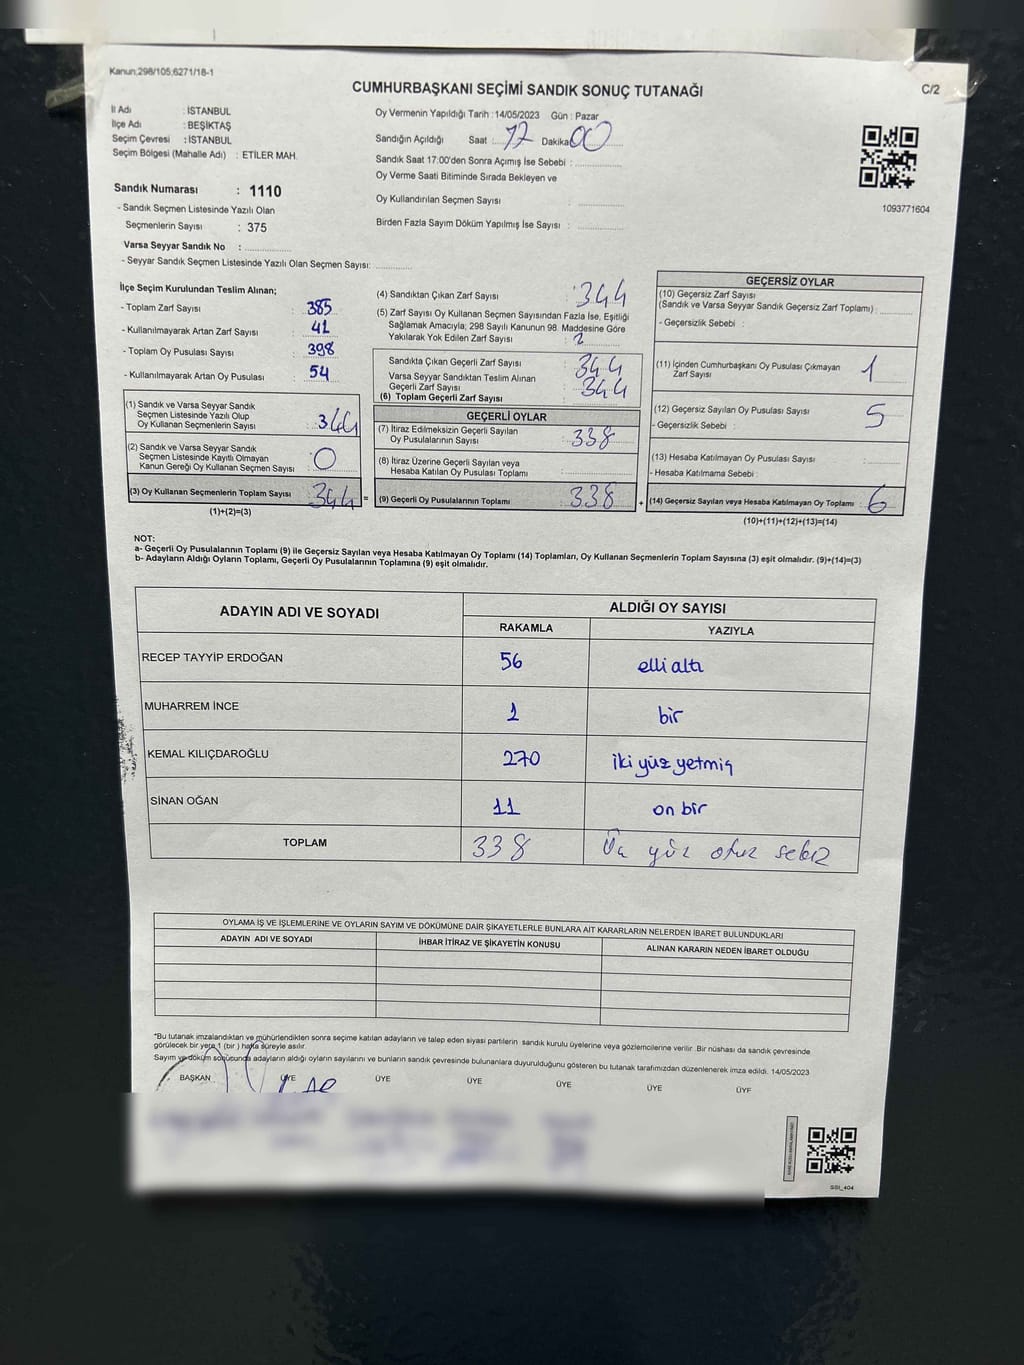 Kanun;298/105;6271/18-1
CUMHURBAŞKANI SEÇİMİ SANDIK SONUÇ TUTANAĞI
C/2
İl Adı : İSTANBUL
İlçe Adı : BEŞİKTAŞ
Seçim Çevresi : İSTANBUL
Seçim Bölgesi (Mahalle Adı) : ETİLER MAH.
Oy Vermenin Yapıldığı Tarih :14/05/2023 Gün : Pazar
Sandığın Açıldığı Saat : 17 Dakika 00
Sandık Saat 17:00'den Sonra Açımış İse Sebebi :
Oy Verme Saati Bitiminde Sırada Bekleyen ve
Oy Kullandırılan Seçmen Sayısı :
Birden Fazla Sayım Döküm Yapılmış İse Sayısı :
1093771604
Sandık Numarası : 1110
- Sandık Seçmen Listesinde Yazılı Olan
Seçmenlerin Sayısı : 375
Varsa Seyyar Sandık No :
- Seyyar Sandık Seçmen Listesinde Yazılı Olan Seçmen Sayısı:
İlçe Seçim Kurulundan Teslim Alınan;
- Toplam Zarf Sayısı : 385
- Kullanılmayarak Artan Zarf Sayısı : 41
- Toplam Oy Pusulası Sayısı : 398
- Kullanılmayarak Artan Oy Pusulası : 54
(1) Sandık ve Varsa Seyyar Sandık
Seçmen Listesinde Yazılı Olup
Oy Kullanan Seçmenlerin Sayısı : 344
(2) Sandık ve Varsa Seyyar Sandık
Seçmen Listesinde Kayıtlı Olmayan
Kanun Gereği Oy Kullanan Seçmen Sayısı : 0
(3) Oy Kullanan Seçmenlerin Toplam Sayısı 344 =
(1)+(2)=(3)
(4) Sandıktan Çıkan Zarf Sayısı : 344
(5) Zarf Sayısı Oy Kullanan Seçmen Sayısından Fazla İse, Eşitliği
Sağlamak Amacıyla; 298 Sayılı Kanunun 98. Maddesine Göre
Yakılarak Yok Edilen Zarf Sayısı :
Sandıkta Çıkan Geçerli Zarf Sayısı : 344
Varsa Seyyar Sandıktan Teslim Alınan
Geçerli Zarf Sayısı :
(6) Toplam Geçerli Zarf Sayısı : 344
GEÇERLİ OYLAR
(7) İtiraz Edilmeksizin Geçerli Sayılan
Oy Pusulalarının Sayısı : 338
(8) İtiraz Üzerine Geçerli Sayılan veya
Hesaba Katılan Oy Pusulası Toplamı :
(9) Geçerli Oy Pusulalarının Toplamı : 338 +
GEÇERSİZ OYLAR
(10) Geçersiz Zarf Sayısı
(Sandık ve Varsa Seyyar Sandık Geçersiz Zarf Toplamı) :
- Geçersizlik Sebebi :
(11) İçinden Cumhurbaşkanı Oy Pusulası Çıkmayan
Zarf Sayısı : 1
(12) Geçersiz Sayılan Oy Pusulası Sayısı : 5
- Geçersizlik Sebebi :
(13) Hesaba Katılmayan Oy Pusulası Sayısı :
- Hesaba Katılmama Sebebi :
(14) Geçersiz Sayılan veya Hesaba Katılmayan Oy Toplamı : 6
(10)+(11)+(12)+(13)=(14)
NOT:
a- Geçerli Oy Pusulalarının Toplamı (9) ile Geçersiz Sayılan veya Hesaba Katılmayan Oy Toplamı (14) Toplamları, Oy Kullanan Seçmenlerin Toplam Sayısına (3) eşit olmalıdır. (9)+(14)=(3)
b- Adayların Aldığı Oyların Toplamı, Geçerli Oy Pusulalarının Toplamına (9) eşit olmalıdır.
ADAYIN ADI VE SOYADI
ALDIĞI OY SAYISI
RAKAMLA YAZIYLA
RECEP TAYYİP ERDOĞAN 56 elli altı
MUHARREM İNCE 1 bir
KEMAL KILIÇDAROĞLU 270 iki yüz yetmiş
SİNAN OĞAN 11 on bir
TOPLAM 338 Üç yüz otuz sekiz
OYLAMA İŞ VE İŞLEMLERİNE VE OYLARIN SAYIM VE DÖKÜMÜNE DAİR ŞİKAYETLERLE BUNLARA AİT KARARLARIN NELERDEN İBARET BULUNDUKLARI
ADAYIN ADI VE SOYADI İHBAR İTİRAZ VE ŞİKAYETİN KONUSU ALINAN KARARIN NEDEN İBARET OLDUĞU
*Bu tutanak imzalandıktan ve mühürlendikten sonra seçime katılan adayların ve talep eden siyasi partilerin sandık kurulu üyelerine veya gözlemcilerine verilir. Bir nüshası da sandık çevresinde
görülecek bir yere 1 (bir ) hafta süreyle asılır.
Sayım ve döküm sonucunda adayların aldığı oyların sayılarını ve bunların sandık çevresinde bulunanlara duyurulduğunu gösteren bu tutanak tarafımızdan düzenlenerek imza edildi. 14/05/2023
BAŞKAN ÜYE ÜYE ÜYE ÜYE ÜYE ÜYE
SSI_404